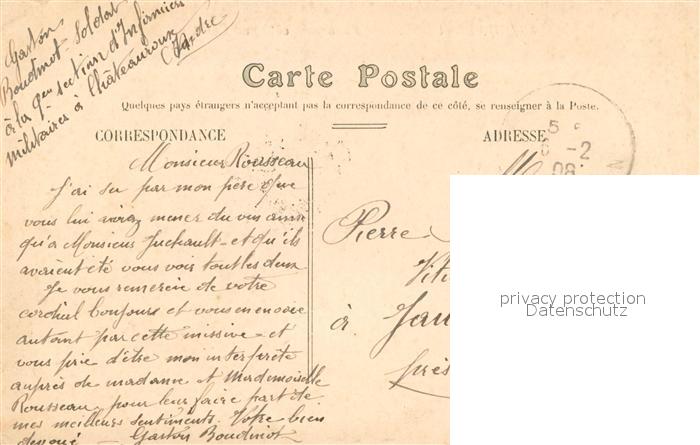 Gaston
Boudinot Soldat
à la 9eme section d'Infirmiers
militaires à Châteauroux
Indre
Carte Postale
Quelques pays étrangers n'acceptant pas la correspondance de ce côté, se renseigner à la Poste.
CORRESPONDANCE
ADRESSE
5
-2
08
Monsieur Rousseau
J'ai su par mon père que
vous lui aviez mener du vin ainsi
qu'à Monsieur Juchault et qu'ils
avaient été vous voir tout les deux
Je vous remercie de votre
cordiel bonjours et vous en envoie
autant par cette missive et
vous prie d'être mon interprète
auprès de madame et Mademoiselle
Rousseau pour leur faire part de
mes meilleurs sentiments. Votre bien
dévoué — Gaston Boudinot
M
Pierre
Viti
à Jau
près
privacy protection
Datenschutz